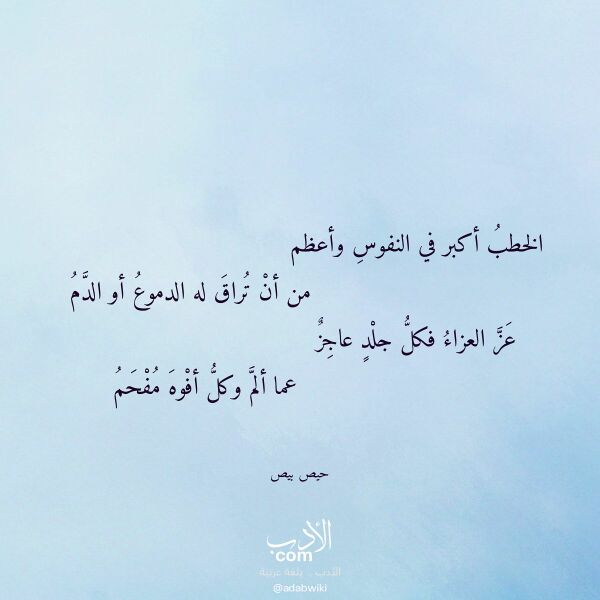 الخطبُ أكبر في النفوسِ وأعظم
من أنْ تُراقَ له الدموعُ أو الدَّمُ
عَزَّ العزاءُ فكلُّ جلْدٍ عاجِزٌ
عما ألمَّ وكلُّ أفْوهَ مُفْحَمُ
حيص بيص
الأدب
com
الأدب .. بلغة عربية
@adabwiki